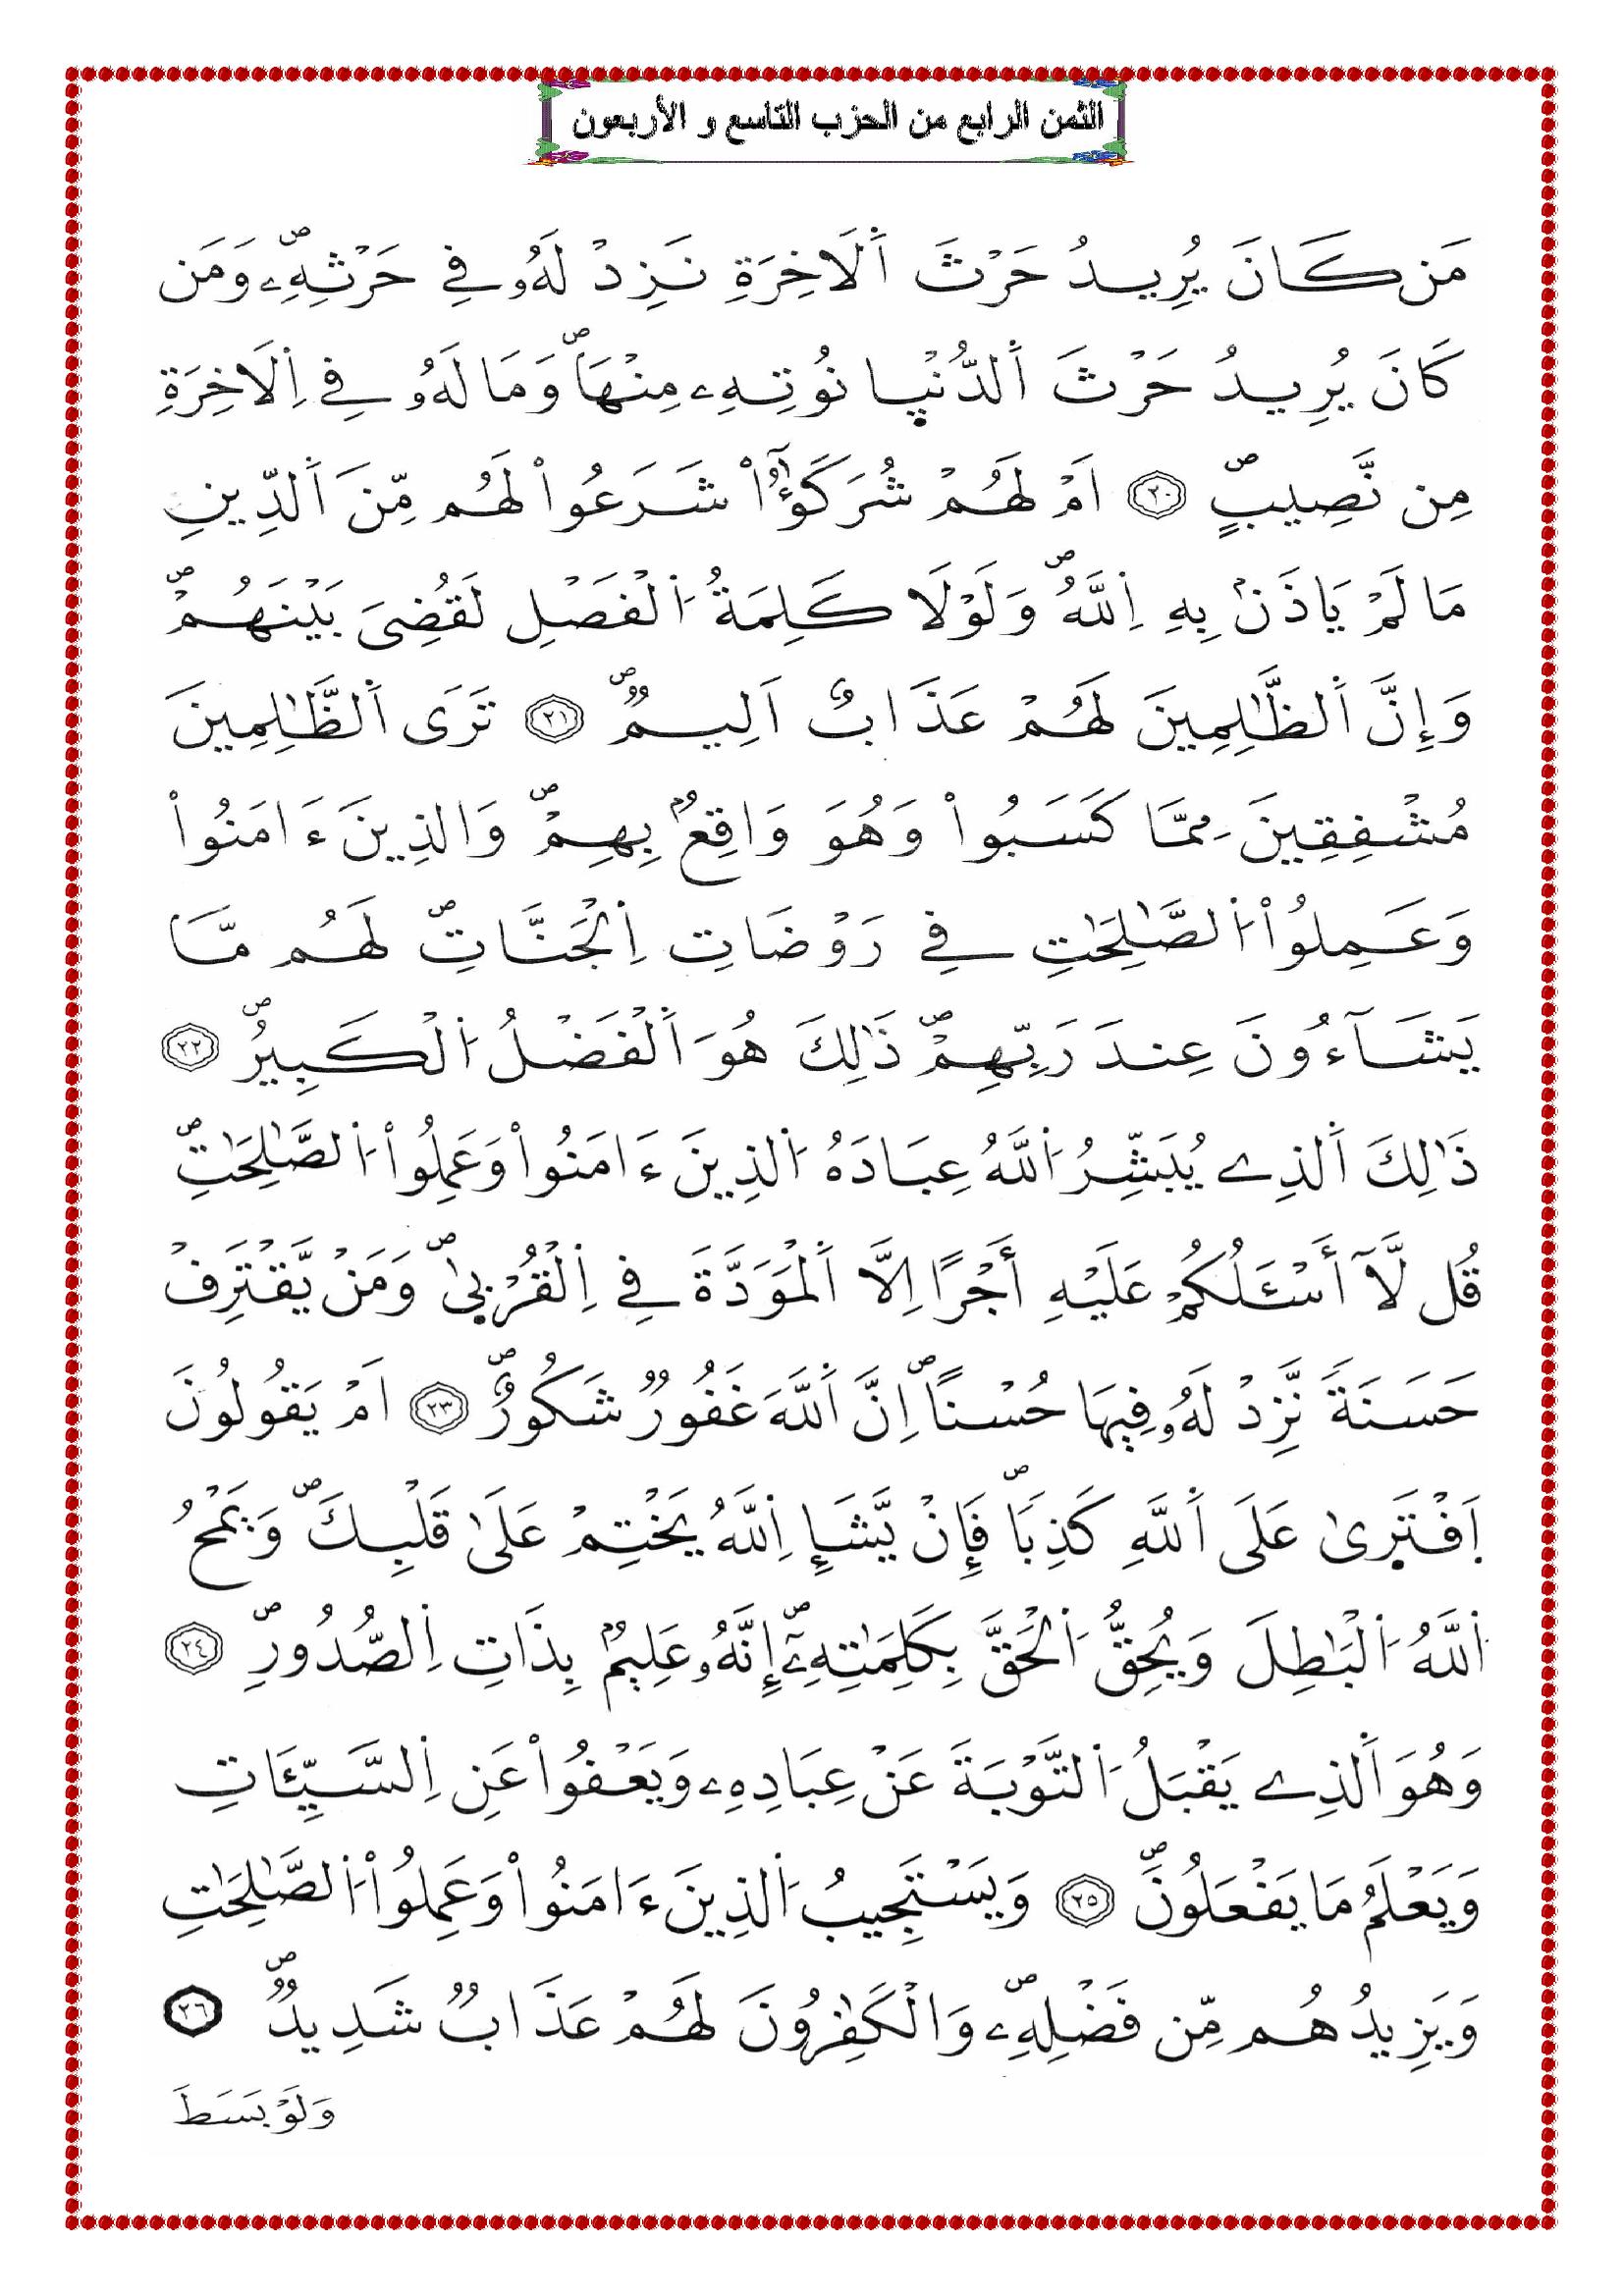 الثمن الرابع من الحزب التاسع و الأربعون
مَن كَانَ يُرِيدُ حَرْثَ اَ۬لَاخِرَةِ نَزِدْ لَهُۥ فِے حَرْثِهِۦۖ وَمَن
كَانَ يُرِيدُ حَرْثَ اَ۬لدُّنْيٜا نُوتِهِۦ مِنْهَاۖ وَمَا لَهُۥ فِے اِ۬لَاخِرَةِ
مِن نَّصِيبٍۖ ٢٠ اَمْ لَهُمْ شُرَكَٰٓؤُاْ شَرَعُواْ لَهُم مِّنَ اَ۬لدِّينِ
مَا لَمْ يَاذَنۢ بِهِ اِ۬للَّهُۖ وَلَوْلَا كَلِمَةُ اُ۬لْفَصْلِ لَقُضِىَ بَيْنَهُمْۖ
وَإِنَّ اَ۬لظَّٰلِمِينَ لَهُمْ عَذَابٌ اَلِيمٌۖ ٢١ تَرَى اَ۬لظَّٰلِمِينَ
مُشْفِقِينَ مِمَّا كَسَبُواْ وَهُوَ وَاقِعُۢ بِهِمْۖ وَالذِينَ ءَامَنُواْ
وَعَمِلُواْ اُ۬لصَّٰلِحَٰتِ فِے رَوْضَاتِ اِ۬لْجَنَّاتِۖ لَهُم مَّا
يَشَآءُونَ عِندَ رَبِّهِمْۖ ذَٰلِكَ هُوَ اَ۬لْفَضْلُ اُ۬لْكَبِيرُۖ ٢٢
ذَٰلِكَ اَ۬لذِے يُبَشِّرُ اُ۬للَّهُ عِبَادَهُ اُ۬لذِينَ ءَامَنُواْ وَعَمِلُواْ اُ۬لصَّٰلِحَٰتِۖ
قُل لَّآ أَسْـَٔلُكُمْ عَلَيْهِ أَجْرًا اِلَّا اَ۬لْمَوَدَّةَ فِے اِ۬لْقُرْبٜىٰۖ وَمَنْ يَّقْتَرِفْ
حَسَنَةً نَّزِدْ لَهُۥ فِيهَا حُسْنًاۖ اِنَّ اَ۬للَّهَ غَفُورٌ شَكُورٌۖ ٢٣ اَمْ يَقُولُونَ
اَ۪فْتَرٜىٰ عَلَى اَ۬للَّهِ كَذِبًاۖ فَإِنْ يَّشَإِ اِ۬للَّهُ يَخْتِمْ عَلَىٰ قَلْبِكَۖ وَيَمْحُ
اُ۬للَّهُ اُ۬لْبَٰطِلَ وَيُحِقُّ اُ۬لْحَقَّ بِكَلِمَٰتِهِۦٓۖ إِنَّهُۥ عَلِيمُۢ بِذَاتِ اِ۬لصُّدُورِۖ ٢٤
وَهُوَ اَ۬لذِے يَقْبَلُ اُ۬لتَّوْبَةَ عَنْ عِبَادِهِۦ وَيَعْفُواْ عَنِ اِ۬لسَّيِّـَٔاتِ
وَيَعْلَمُ مَا يَفْعَلُونَۖ ٢٥ وَيَسْتَجِيبُ اُ۬لذِينَ ءَامَنُواْ وَعَمِلُواْ اُ۬لصَّٰلِحَٰتِ
وَيَزِيدُهُم مِّن فَضْلِهِۦۖ وَالْكَٰفِرُونَ لَهُمْ عَذَابٌ شَدِيدٌۖ ٢٦
وَلَوْ بَسَطَ